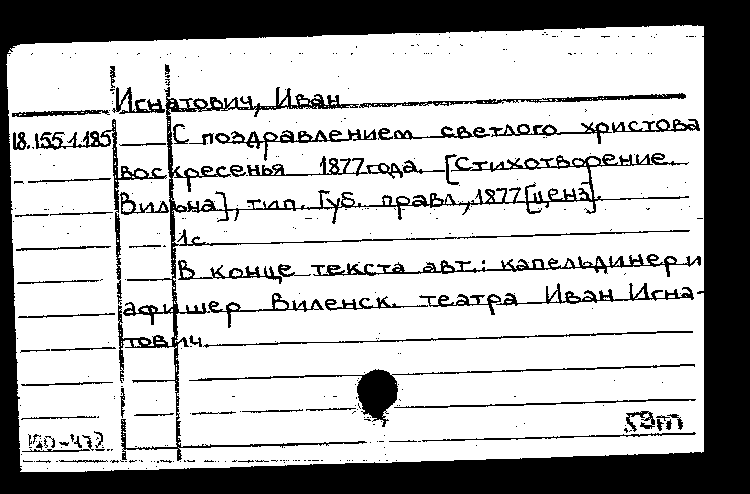 Игнатович, Иван
18.155.1.185 С поздравлением светлого христова
воскресенья 1877 года. [Стихотворение.
Вильна], тип. Губ. правл., 1877 [ценз].
1с.
В конце текста авт.: капельдинер и
афишер Виленск. театра Иван Игна-
тович.
120-472